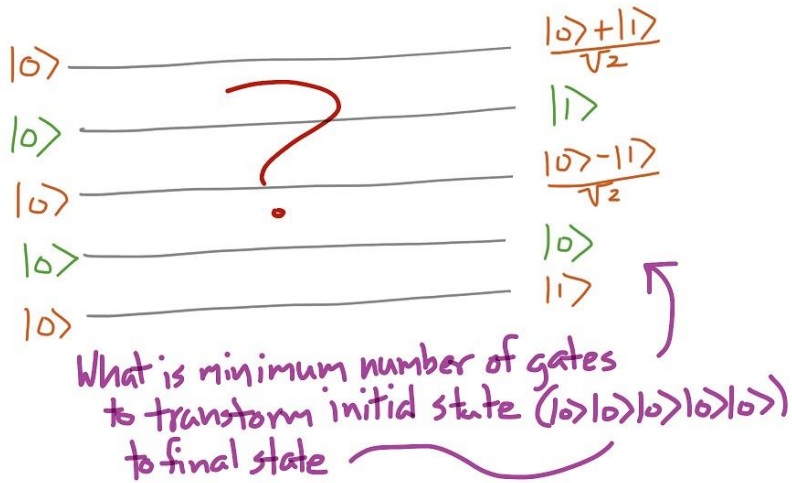 |0⟩ (|0⟩+|1⟩)/√2
|0⟩ |1⟩
|0⟩ (|0⟩-|1⟩)/√2
?
|0⟩ |0⟩
|0⟩ |1⟩
What is minimum number of gates
to transform initial state (|0⟩|0⟩|0⟩|0⟩|0⟩)
to final state